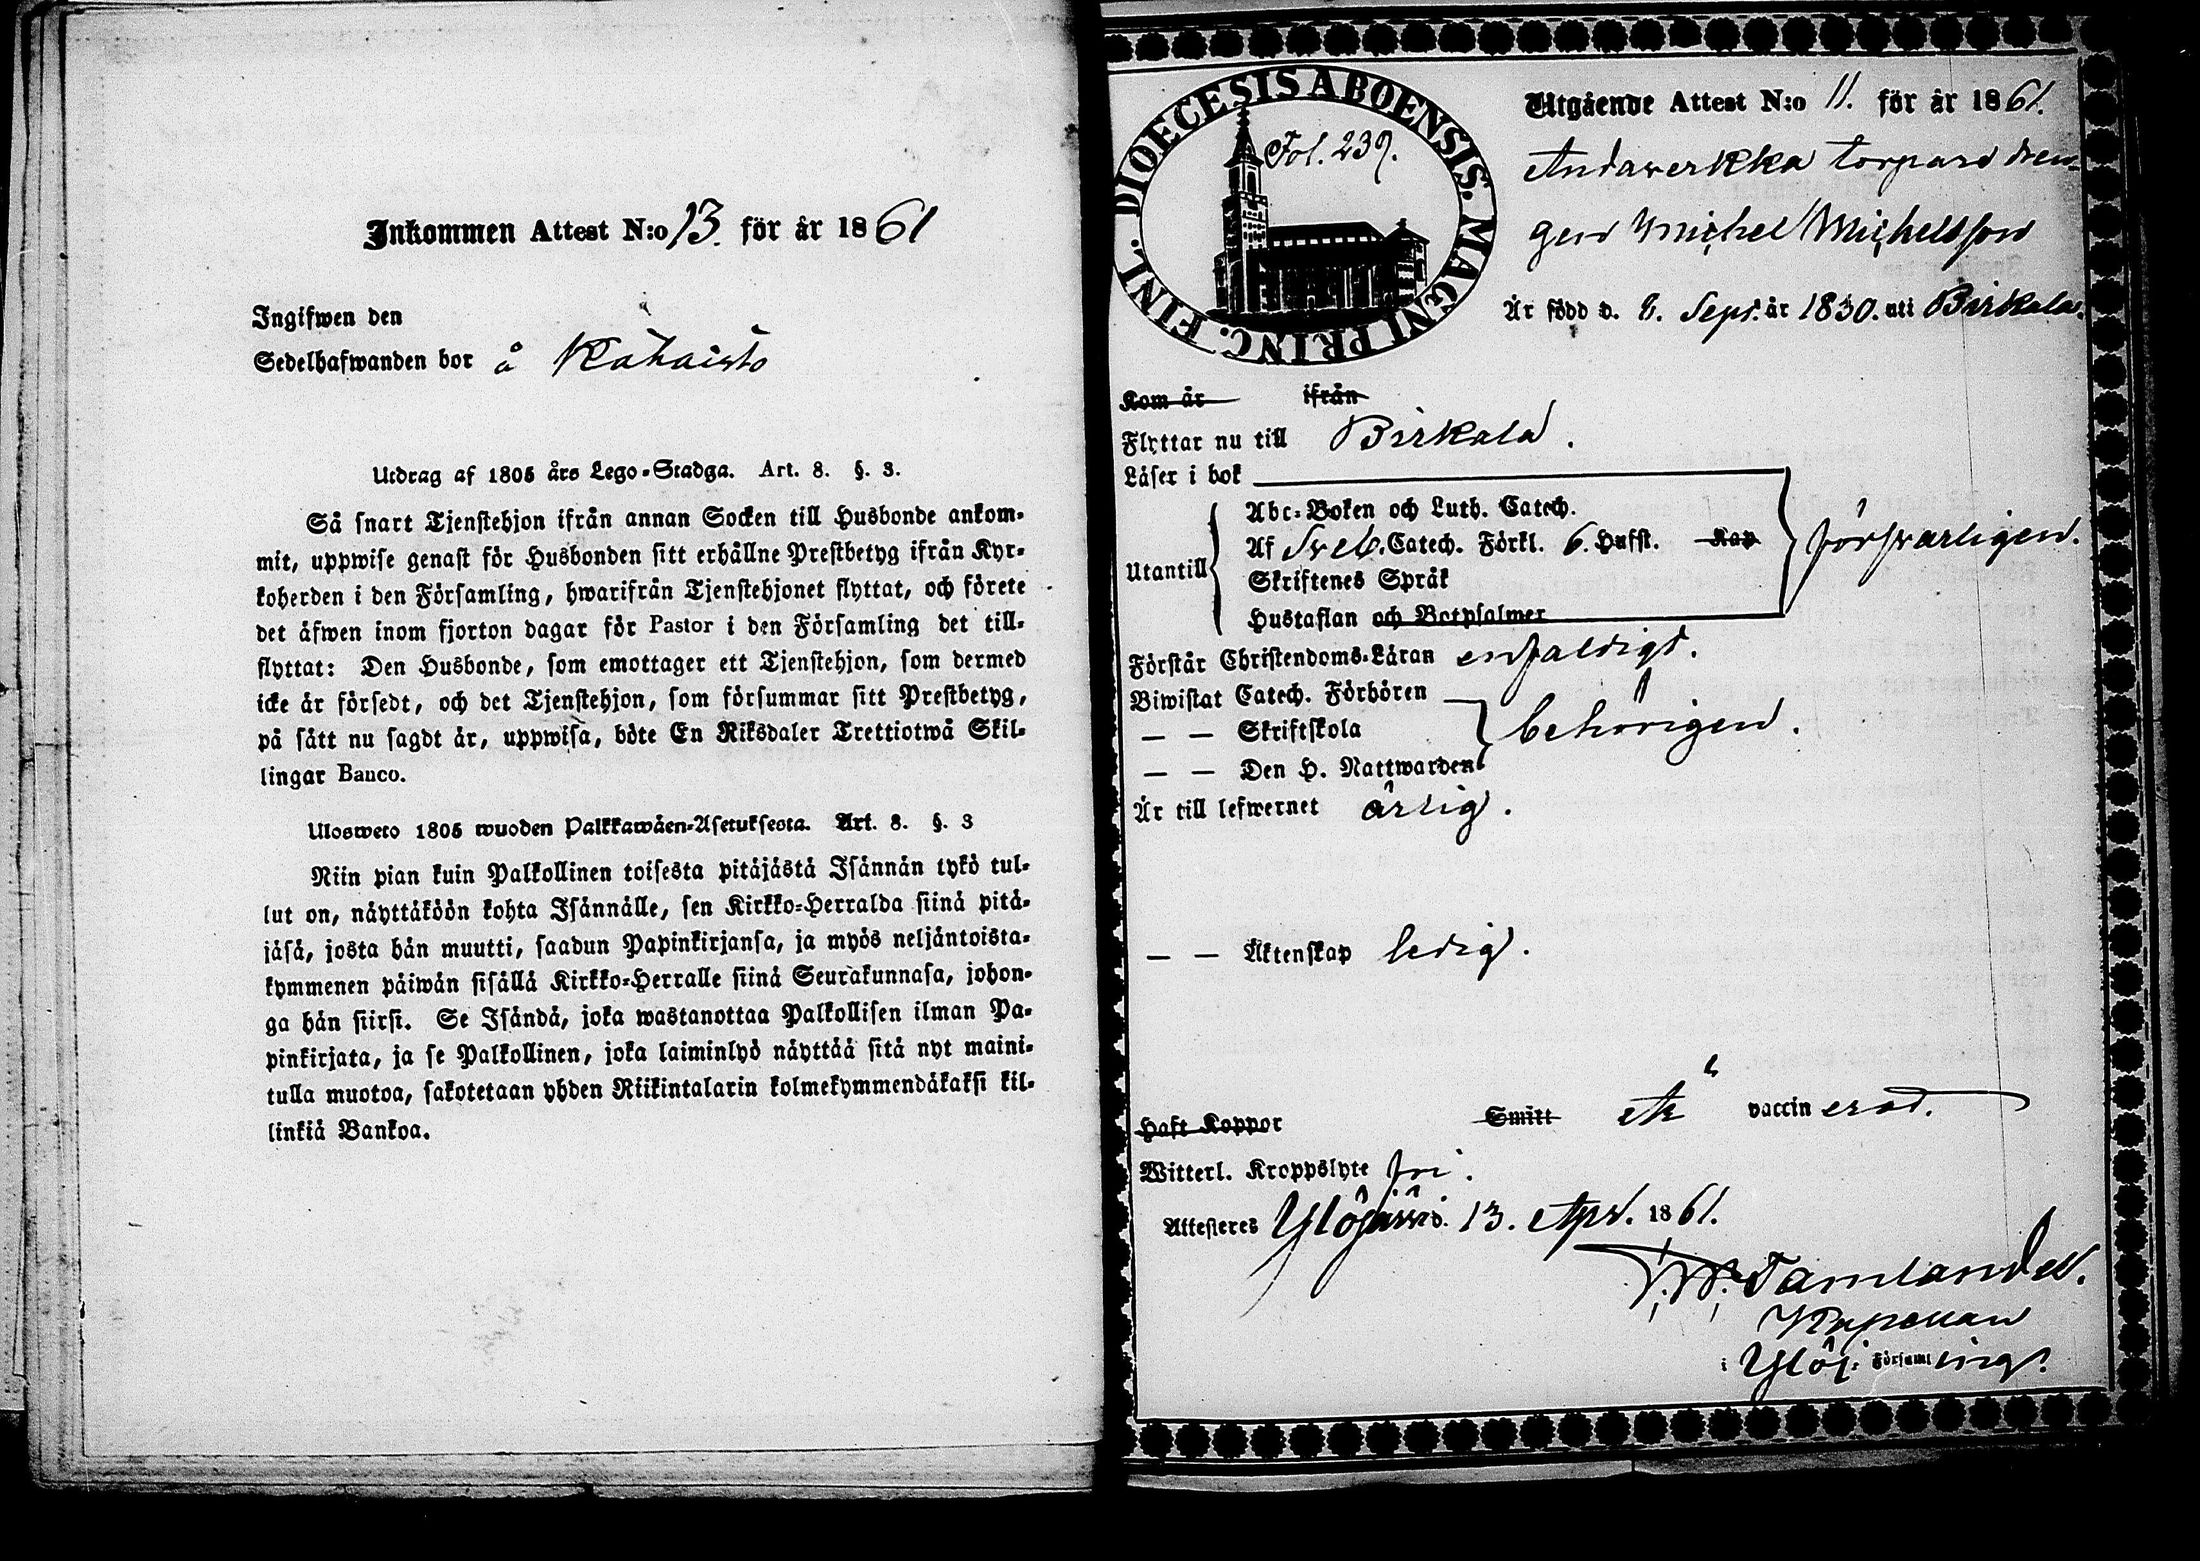 Inkommen Attest N:o 13. för år 1861
Ingifwen den
Sedelhafwanden bor å Rähaisto
Utdrag af 1805 års Lego-Stadga. Art. 8. §. 3.
Så snart Tjenstehjon ifrån annan Socken till Husbonde ankom-
mit, uppwise genast för Husbonden sitt erhållne Prestbetyg ifrån Kyr-
koherden i den Församling, hwarifrån Tjenstehjonet flyttat, och förete
det äfwen inom fjorton dagar för Pastor i den Församling det till-
flyttat: Den Husbonde, som emottager ett Tjenstehjon, som dermed
icke är försedt, och det Tjenstehjon, som försummar sitt Prestbetyg,
på sätt nu sagdt är, uppwisa, böte En Riksdaler Trettiotwå Skil-
lingar Banco.
Ulosweto 1805 wuoden Palkkawäen-Asetuksesta. Art. 8. §. 3
Niin pian kuin Palkollinen toisesta pitäjästä Isännän tykö tul-
lut on, näyttäköön kohta Isännälle, sen Kirkko-Herralda siinä pitä-
jäsä, josta hän muutti, saadun Papinkirjansa, ja myös neljäntoista-
kymmenen päiwän sisällä Kirkko-Herralle siinä Seurakunnasa, johon-
ga hän siirsi. Se Isändä, joka wastanottaa Palkollisen ilman Pa-
pinkirjata, ja se Palkollinen, joka laiminlyö näyttää sitä nyt maini-
tulla muotoa, sakotetaan yhden Riikintalarin kolmekymmendäkaksi kil-
linkiä Bankoa.
DIOECESIS ABOENSIS. MAGNI PRINC. FINL.
Fol. 239.
Utgående Attest N:o 11. för år 1861.
Andawerkka torpare dren-
gen Michel Michelsson
Är född d. 8. Sept. år 1830. uti Birkala.
Kom år ifrån
Flyttar nu till Birkala.
Läser i bok
Utantill
Abc-Boken och Luth. Catech.
Af Sveb. Catech. Förkl. 6. Hufst. Kap
Skriftenes Språk
Hustaflan och Botpsalmer
försvarligen.
Förstår Christendoms-Läran enfaldigt.
Biwistat Catech. Förhören
— — Skriftskola
— — Den H. Nattwarden
behörigen.
Är till lefwernet ärlig.
— — Äktenskap ledig.
Haft Koppor Smitt Är vaccinerad.
Witterl. Kroppslyte fri.
Attesteres Ylöjärvi d. 13. Apr. 1861.
Tamlander.
Kapellan
i Ylöj. Församling.